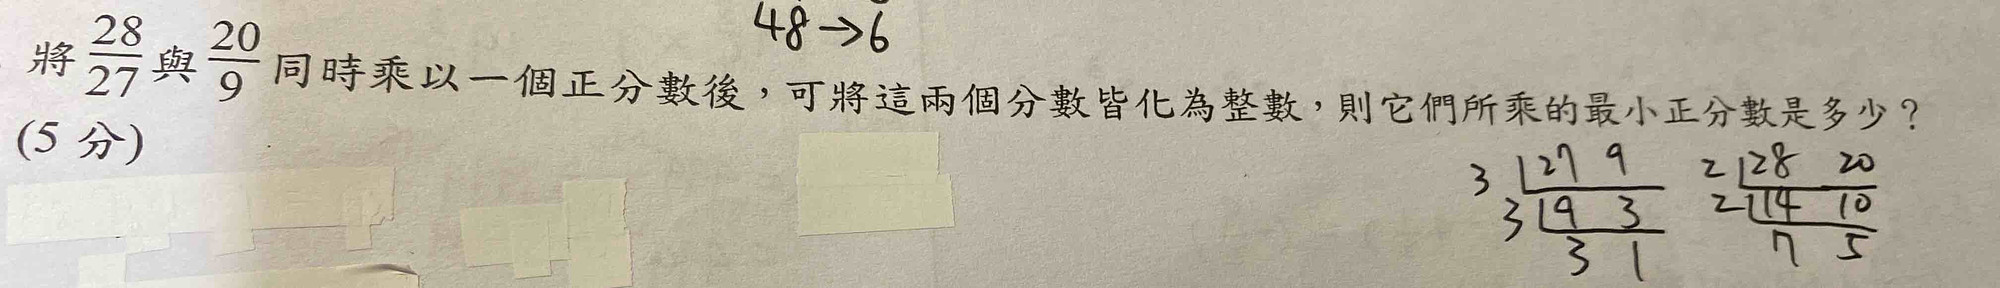 48→6
將 28/27 與 20/9 同時乘以一個正分數後，可將這兩個分數皆化為整數，則它們所乘的最小正分數是多少？
(5 分)
3 27 9
3 9 3
3 1
2 28 20
2 14 10
7 5